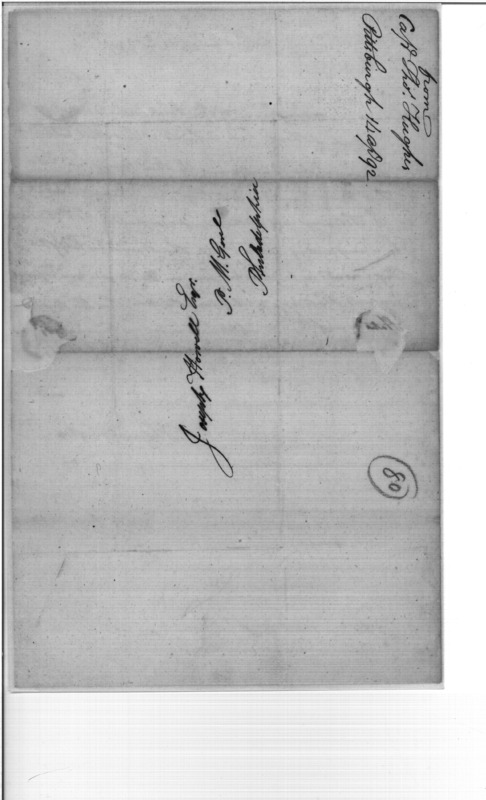 from
Capt. Thos. Hughes
Pittsburgh 14 Ap 92
Joseph Howell Esqr.
P. M. Genl
Philadelphia
80